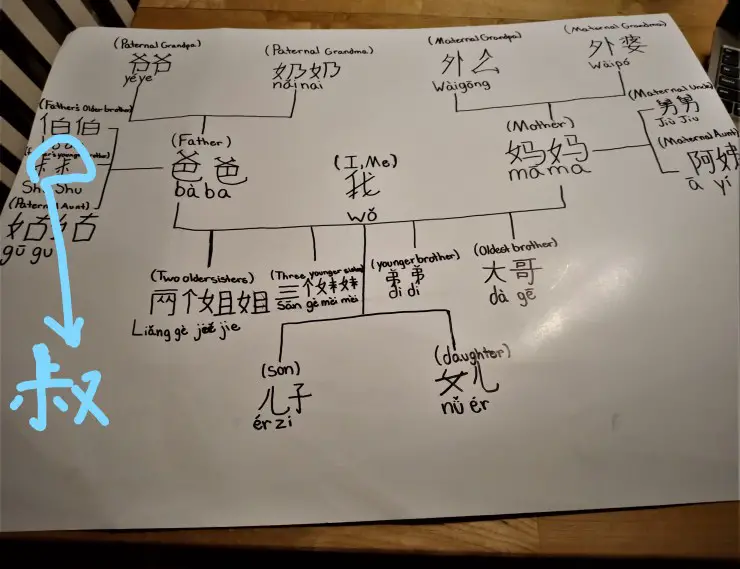 (Paternal Grandpa)
爷爷
yéye
(Paternal Grandma)
奶奶
nǎi nai
(Maternal Grandpa)
外么
Wàigōng
(Maternal Grandma)
外婆
Wàipó
(Father's Older brother)
伯伯
younger brother)
Shū Shu
(Paternal Aunt)
姑姑
gū gu
叔
(Father)
爸爸
bàba
(I, Me)
我
wǒ
(Mother)
妈妈
māma
(Maternal Uncle)
舅舅
Jiù Jiu
(Maternal Aunt)
阿姨
ā yí
(Two older sisters)
兩个姐姐
Liǎng gè jiě jie
(Three younger sisters)
三个妹妹
Sān gè mèi mèi
(younger brother)
弟弟
dì di
(Oldest brother)
大哥
dà gē
(son)
儿子
ér zi
(daughter)
女儿
nǚ ér